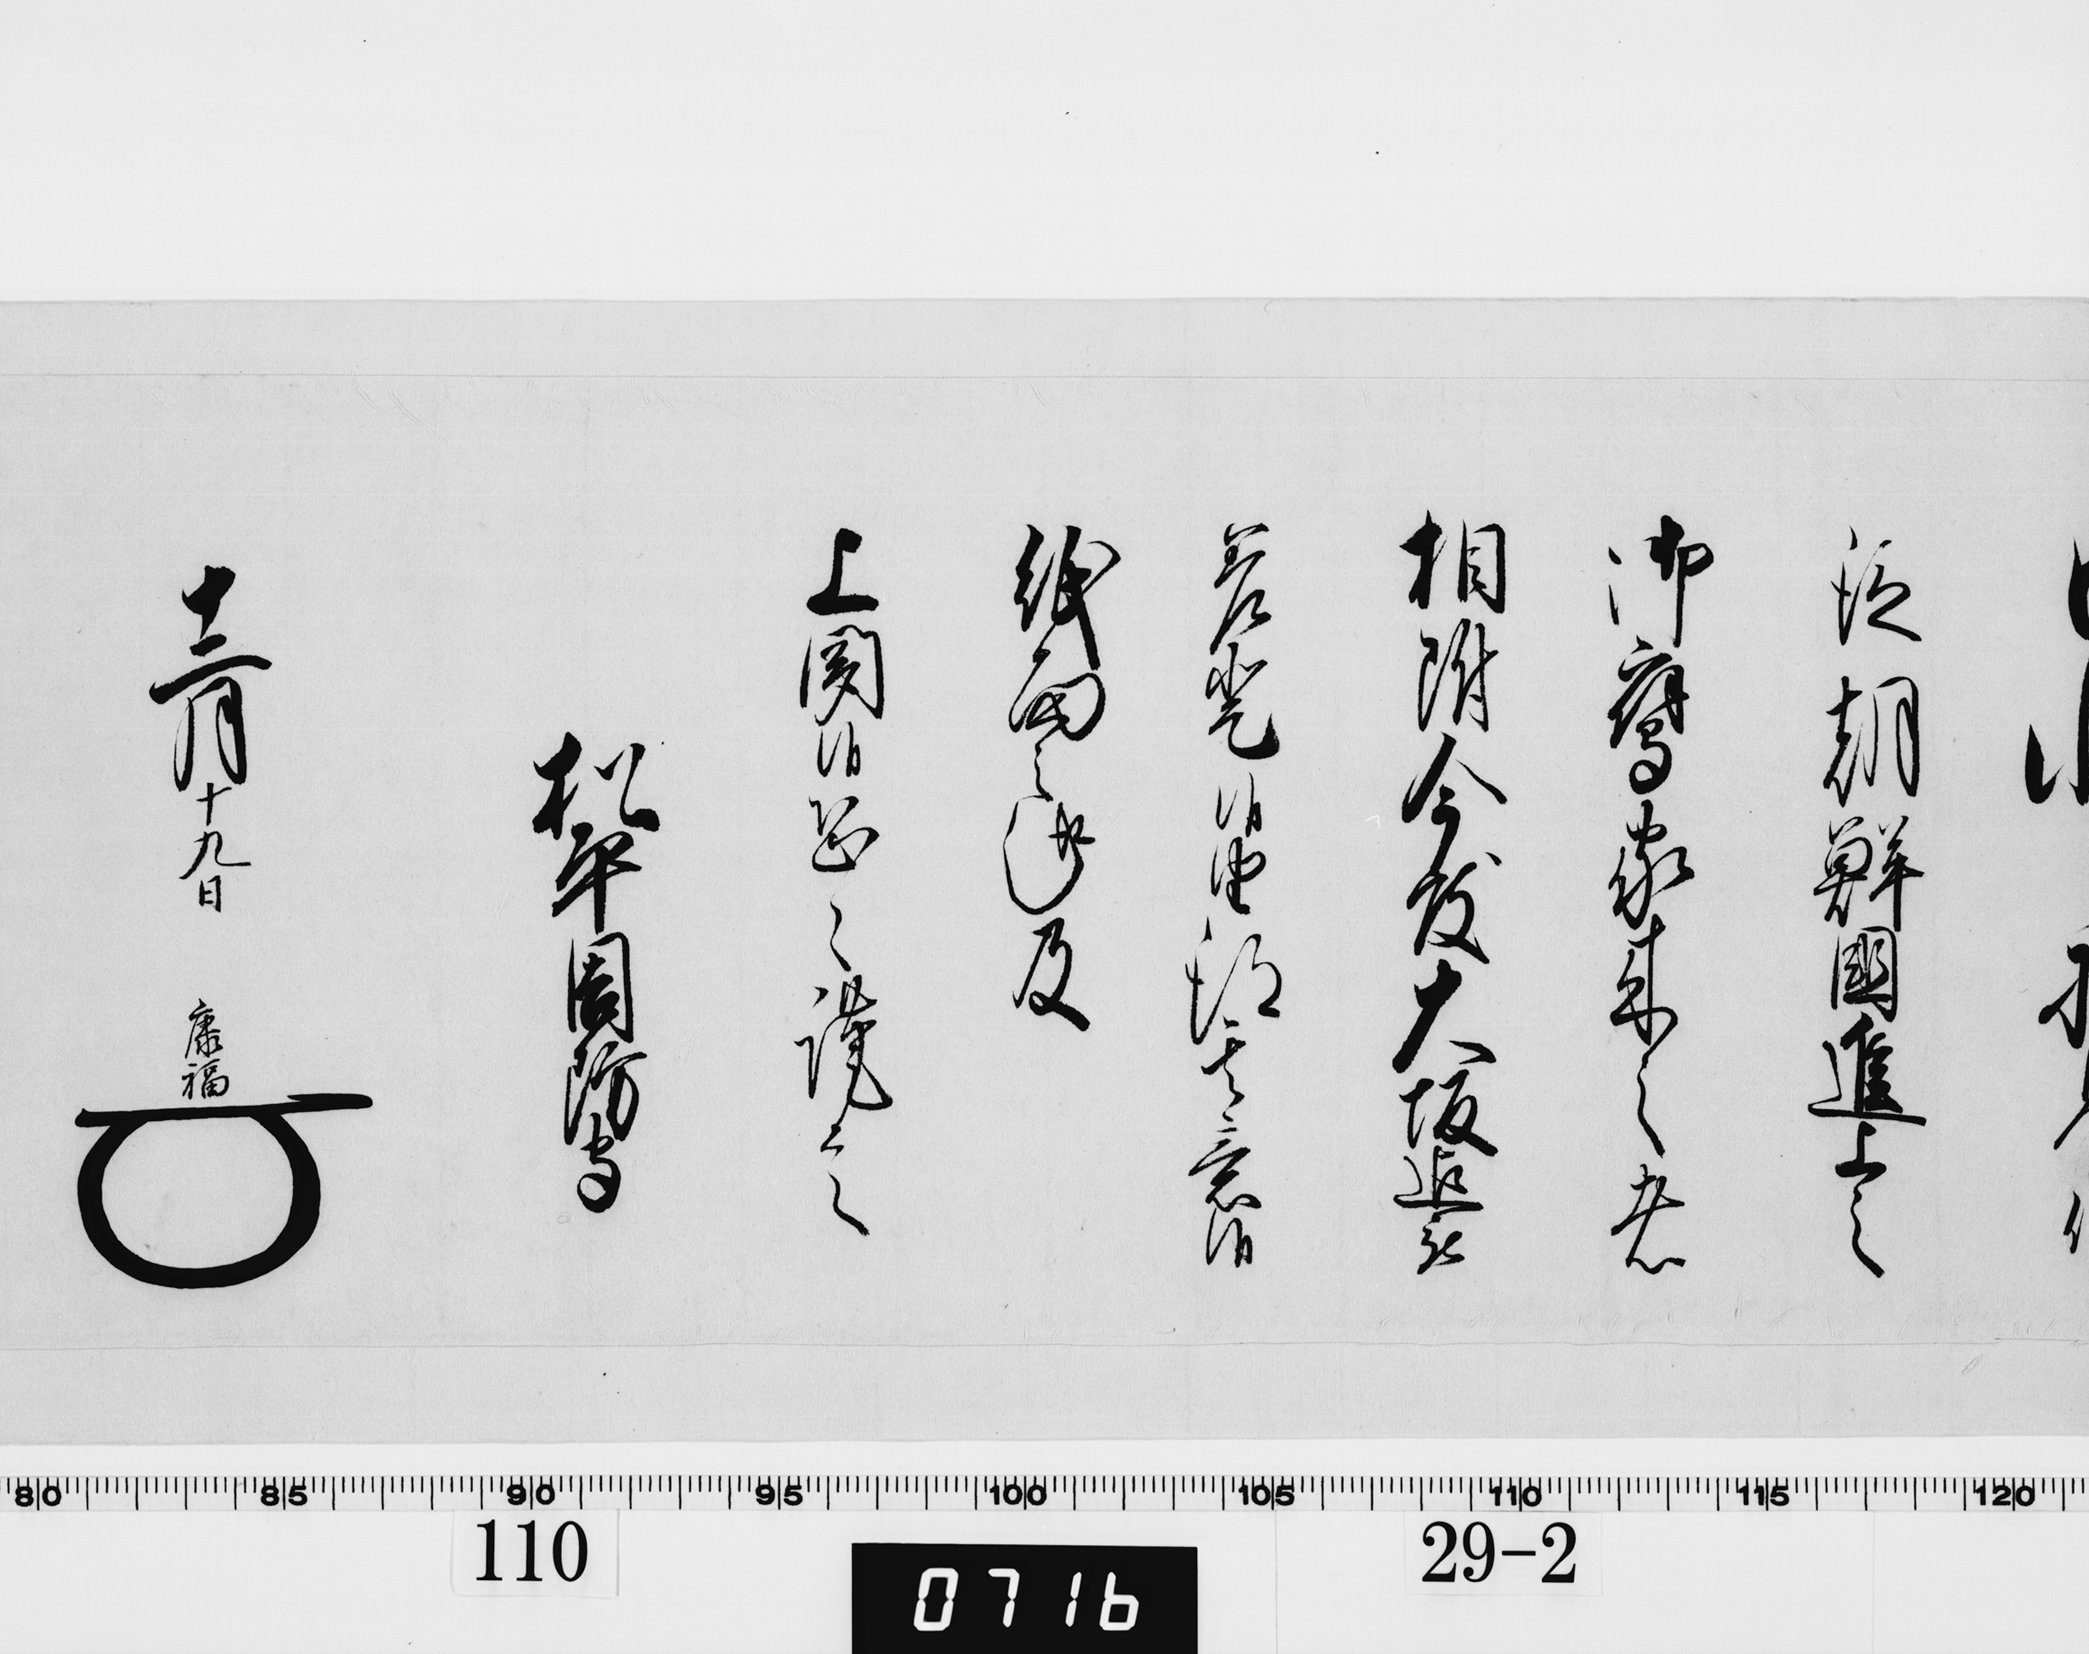 従朝鮮国進上之
御鷹家来之者
相附今度大坂迄
差登候由得其意候
紙面之趣及
上聞候恐々謹言
松平周防守
十二月十九日
康福
80 85 90 95 100 105 110 115 120
110
29-2
0716